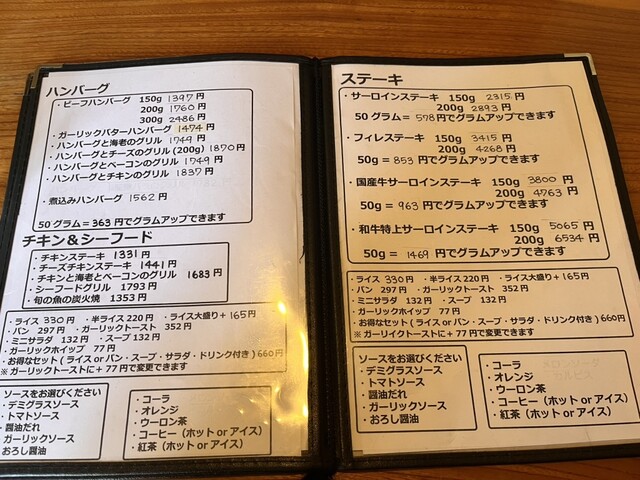 ハンバーグ
・ビーフハンバーグ 150g 1397円
200g 1760円
300g 2486円
・ガーリックバターハンバーグ 1474円
・ハンバーグと海老のグリル 1749円
・ハンバーグとチーズのグリル(200g) 1870円
・ハンバーグとベーコンのグリル 1749円
・ハンバーグとチキンのグリル 1837円
・煮込みハンバーグ 1562円
50グラム=363円でグラムアップできます
チキン&シーフード
・チキンステーキ 1331円
・チーズチキンステーキ 1441円
・チキンと海老とベーコンのグリル 1683円
・シーフードグリル 1793円
・旬の魚の炭火焼 1353円
・ライス 330円 ・半ライス220円 ・ライス大盛り+165円
・パン 297円 ・ガーリックトースト 352円
・ミニサラダ 132円 ・スープ132円
・ガーリックホイップ 77円
・お得なセット(ライスorパン・スープ・サラダ・ドリンク付き)660円
※ガーリックトーストに+77円で変更できます
ソースをお選びください
・デミグラスソース
・トマトソース
・醤油だれ
・ガーリックソース
・おろし醤油
・コーラ
・オレンジ
・ウーロン茶
・コーヒー(ホットorアイス)
・紅茶(ホットorアイス)
ステーキ
・サーロインステーキ 150g 2315円
200g 2893円
50グラム=578円でグラムアップできます
・フィレステーキ 150g 3415円
200g 4268円
50g=853円でグラムアップできます
・国産牛サーロインステーキ 150g 3800円
200g 4763円
50g=963円でグラムアップできます
・和牛特上サーロインステーキ 150g 5065円
200g 6534円
50g=1469円でグラムアップできます
・ライス330円 ・半ライス220円 ・ライス大盛り+165円
・パン 297円 ・ガーリックトースト 352円
・ミニサラダ 132円 ・スープ 132円
・ガーリックホイップ 77円
・お得なセット(ライスorパン・スープ・サラダ・ドリンク付き)660円
※ガーリイクトーストに+77円で変更できます
ソースをお選びください
・デミグラスソース
・トマトソース
・醤油だれ
・ガーリックソース
・おろし醤油
・コーラ メロンソーダ
・オレンジ カルピス
・ウーロン茶
・コーヒー(ホットorアイス)
・紅茶(ホットorアイス)